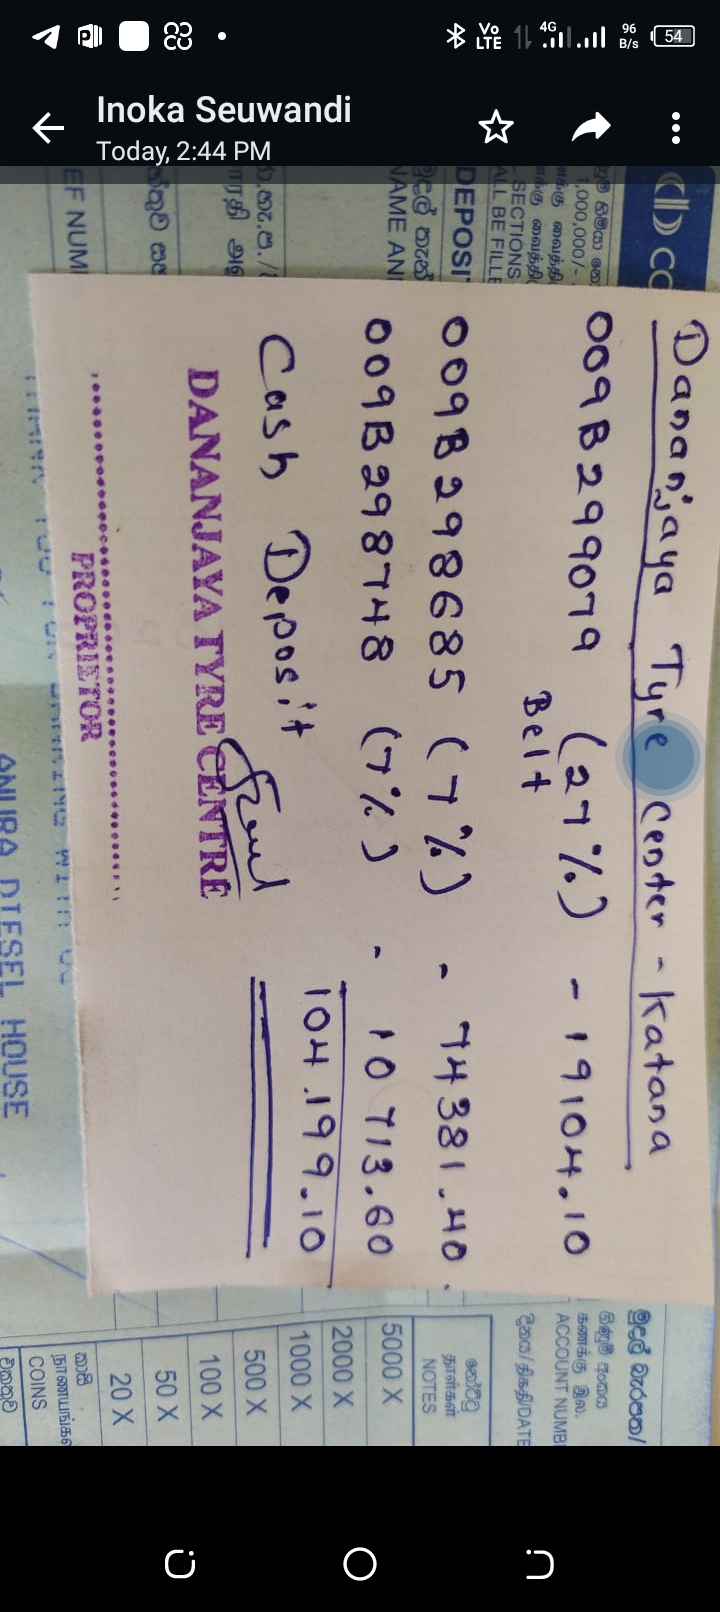 Vo
LTE
4G
96
B/s
54
Inoka Seuwandi
Today, 2:44 PM
DEPOSI
NAME AN
SECTIONS
ALL BE FILLE
1,000,000/-
EF NUM
Dananjaya Tyre Center - Katana
009B299079 (27%) - 19104.10
Belt
009B298685 (7%) - 74381.40
009B298748 (7%) - 10713.60
104.199.10
Cash Deposit
DANANJAYA TYRE CENTRE
PROPRIETOR
ANURA DIESEL HOUSE
ACCOUNT NUMB
නෝට්ටු
தாள்கள்
NOTES
5000 X
2000 X
1000 X
500 X
100 X
50 X
20 X
කාසි
COINS